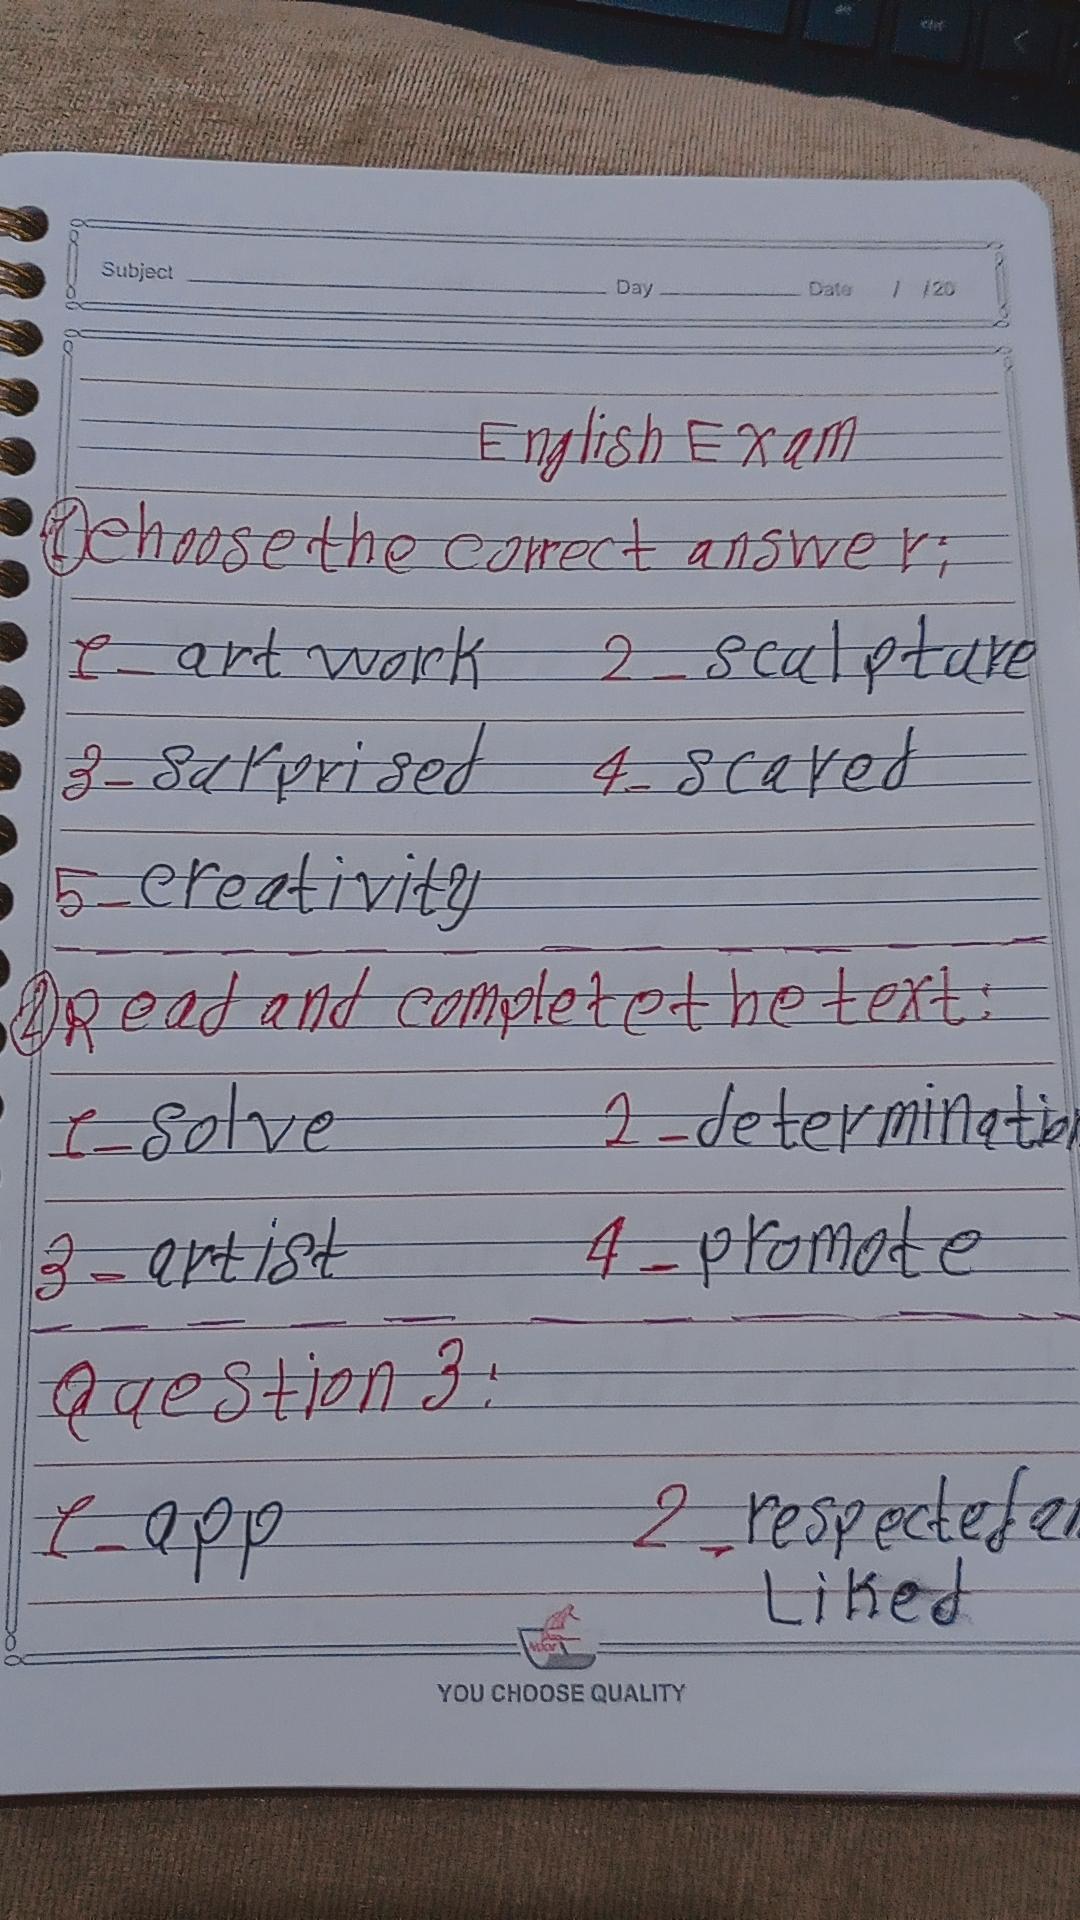 Subject Day Date / /20
English Exam
1 Choose the correct answer:
1- art work 2- scalpture
3- surprised 4- scared
5- creativity
2 Read and complete the text:
1- Solve 2- determination
3- artist 4- promote
Question 3:
1- app 2- respected an
Liked
YOU CHOOSE QUALITY